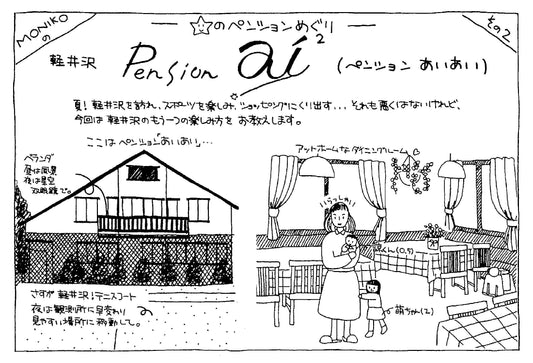 MONIKOの
☆のペンションめぐり
その2
軽井沢 Pension ai² (ペンション あいあい)
夏! 軽井沢を訪れ、スポーツを楽しみ、ショッピングにくり出す... それも悪くはないけれど、
今回は 軽井沢のもう一つの楽しみ方を お教えします。
ここは ペンション「あいあい」...
アットホームなダイニングルーム
ベランダ
昼は風景
夜は星空
双眼鏡で。
いらっしゃい
くん(0.9)
萌ちゃん(2)
さすが 軽井沢!テニスコート
夜は観測所に早変わり
見やすい場所に移動して。